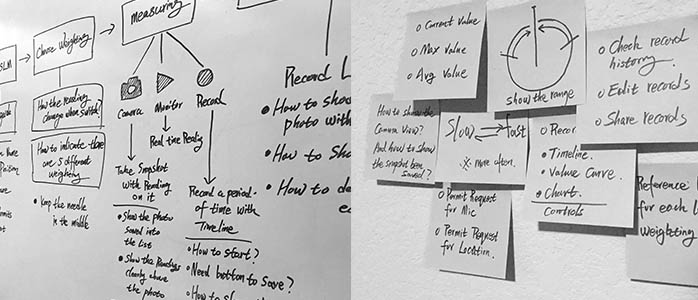 SLM
Choose Weighting
measuring
How the reading
change when switch?
How to indicate there
are 5 different
weighting
• Keep the needle
in the middle
Camera
Monitor
Record
Real time Reading
Take Snapshot
with Reading
on it
• Show the photo
saved into
the list
• Show the Readings
clearly above
the photo
Record a period
of time with
Timeline
• How to start?
• Need button to save?
• How to
Record L
• How to
photo with
• How to Sh
• How to de
o Current Value
o Max value
o Avg value
show the range
o Check record
history.
o Edit records
o Share records
How to show the
Camera View?
And how to show
the snapshot been
saved?
Slow
fast
more often.
o Recor
• Timeline.
• Value Curve.
• Chart.
Controls
o Permit Request
for Mic
o Permit Request
for Location.
Reference
for each L
weighting